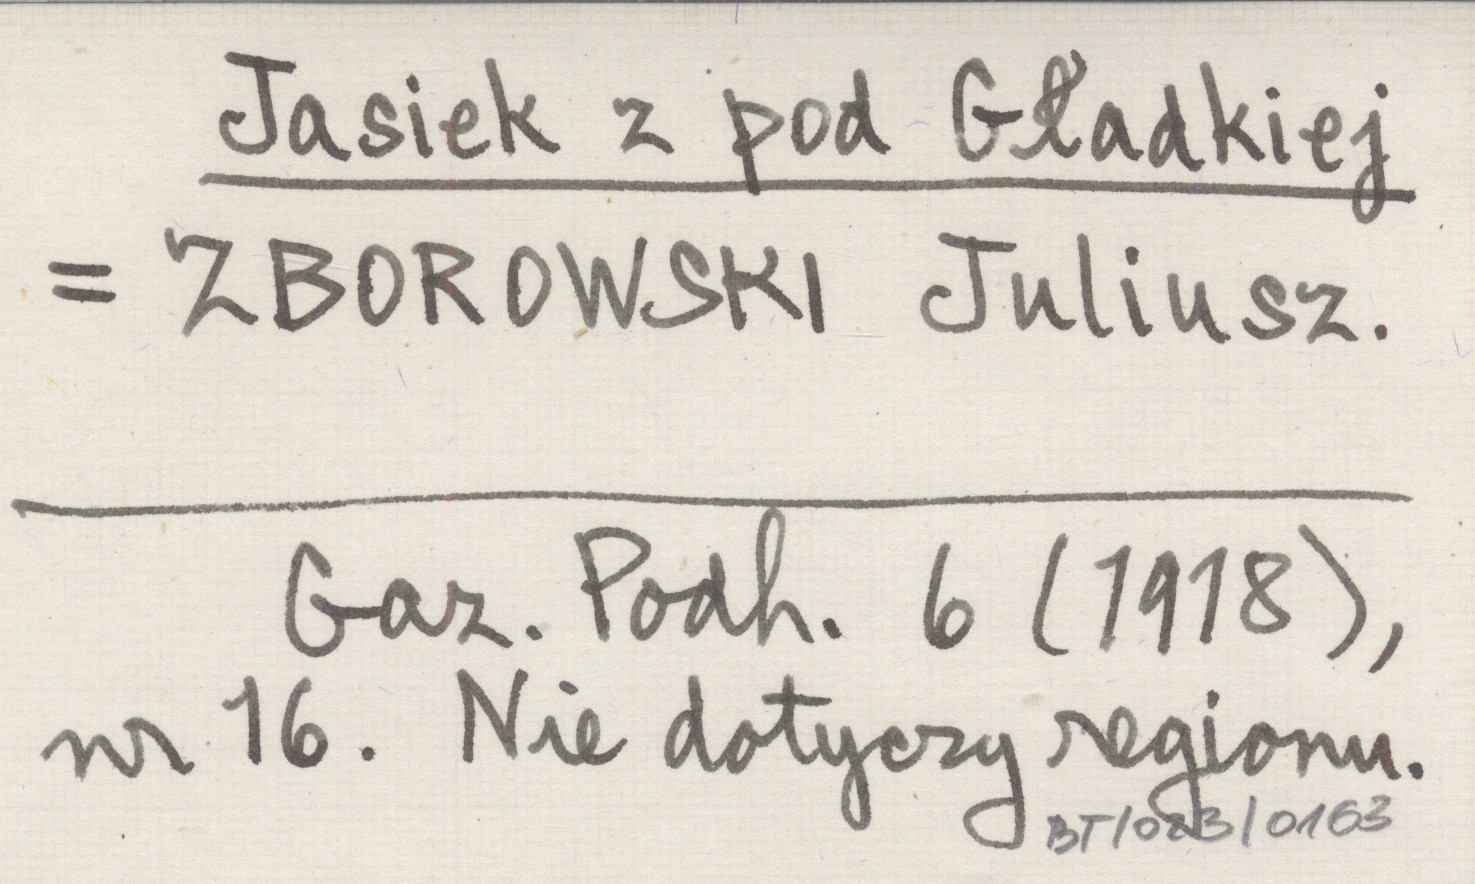 Jasiek z pod Gładkiej
= ZBOROWSKI Juliusz.
Gaz. Podh. 6 (1918),
nr 16. Nie dotyczy regionu.
BT/023/0163